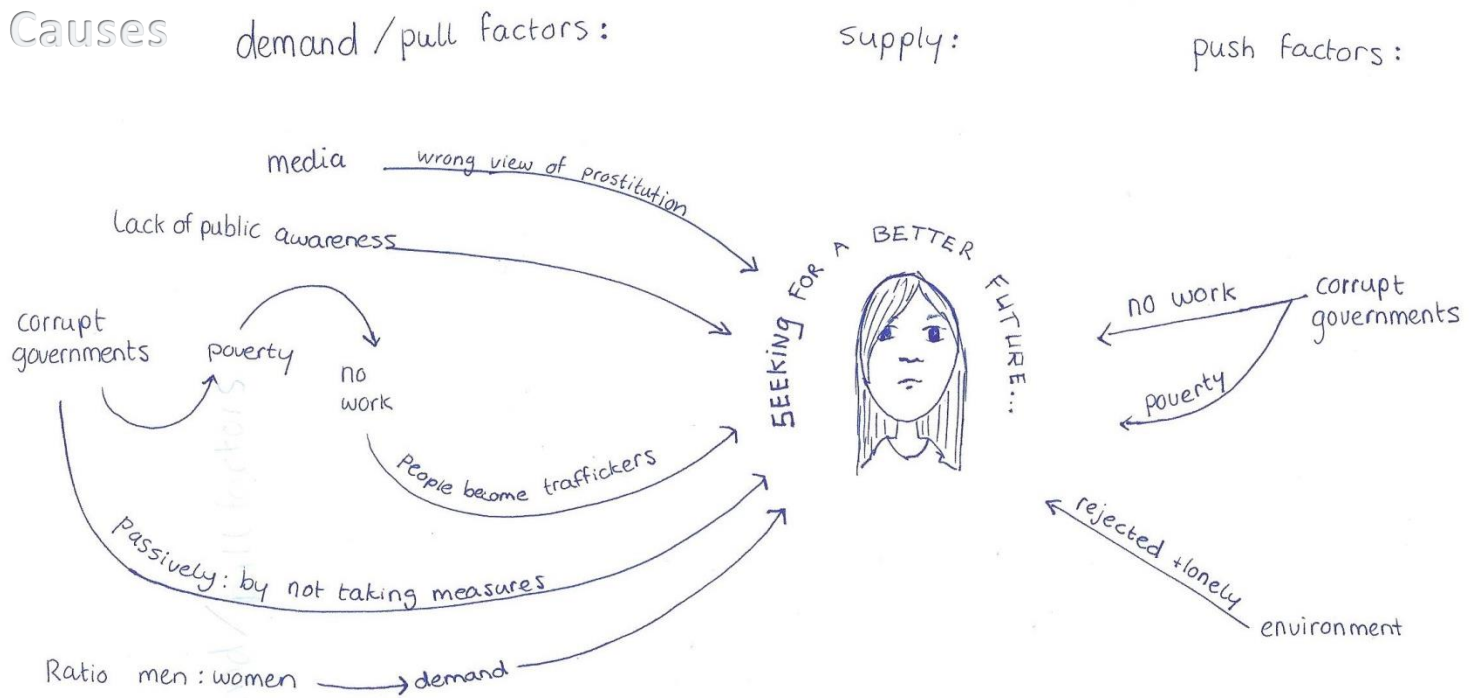 Causes
demand / pull factors:
supply:
push factors:
media
wrong view of prostitution
Lack of public awareness
corrupt
governments
poverty
no
work
People become traffickers
passively: by not taking measures
Ratio men : women
demand
SEEKING FOR A BETTER FUTURE...
no work
corrupt
governments
poverty
rejected + lonely
environment